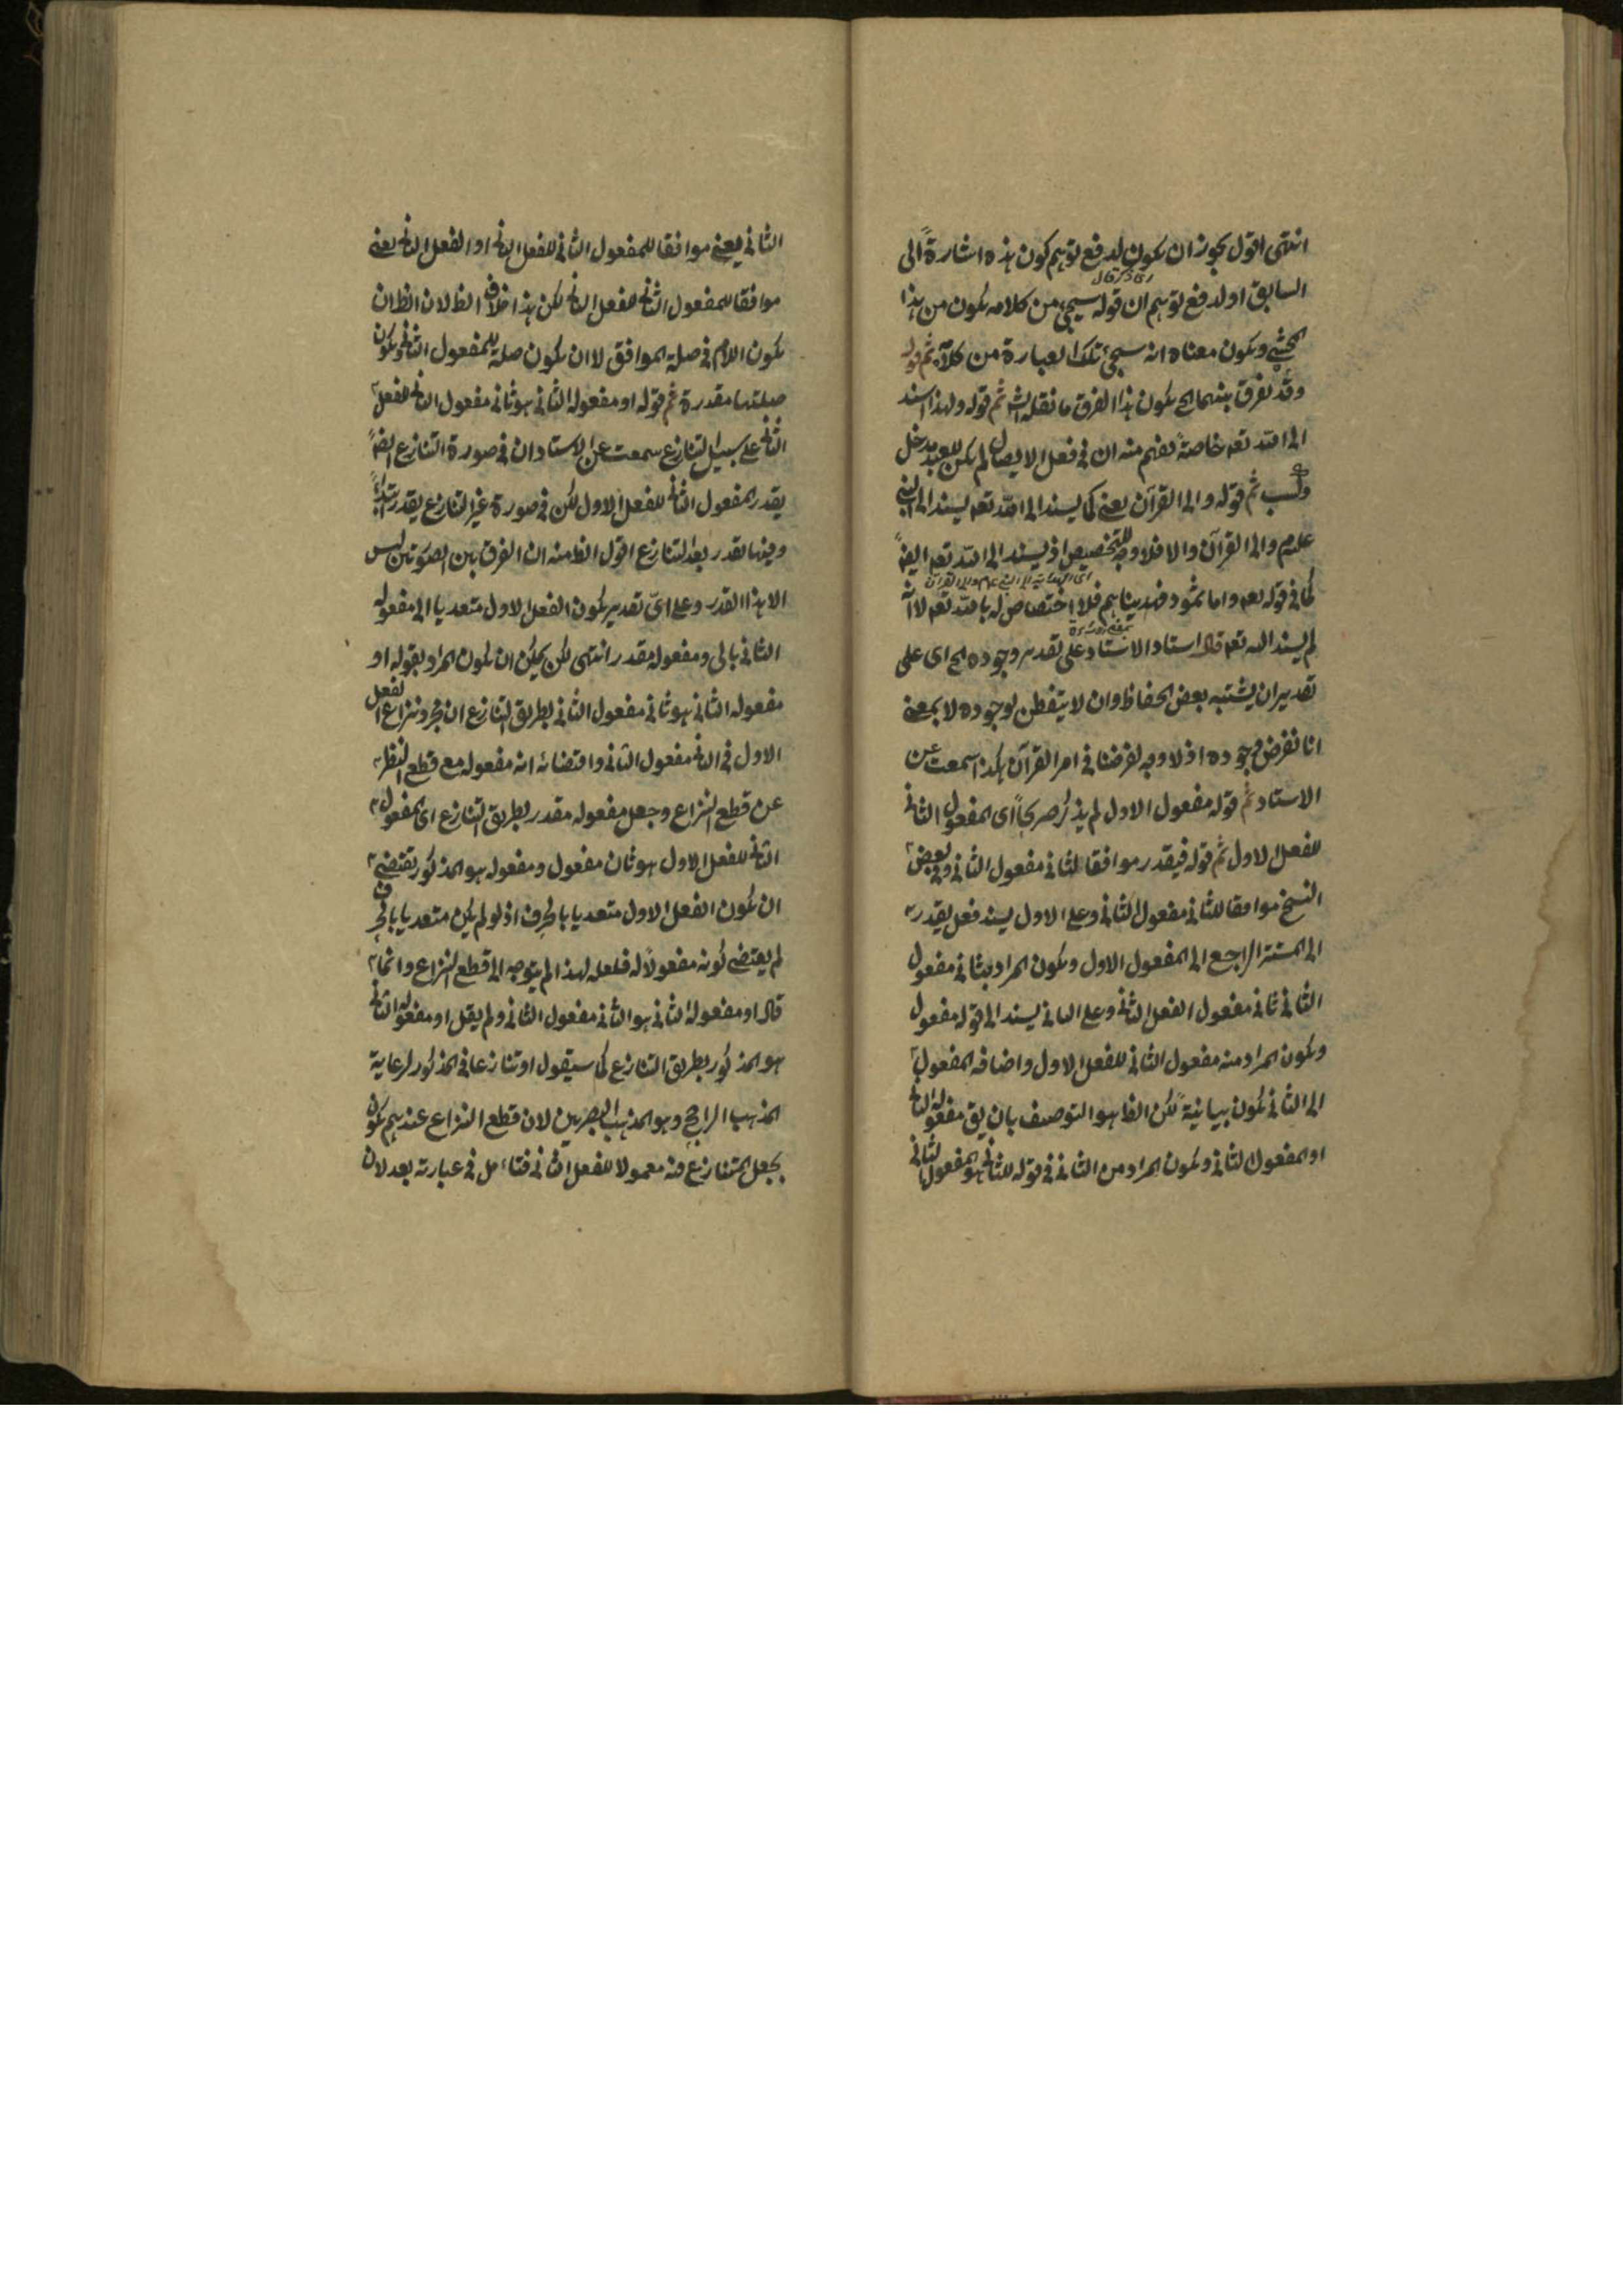 انتهى اقول يجوز ان يكون لدفع توهم كون هذه اشارة الى
السابق او لدفع توهم ان قوله سيجئ من كلامه يكون من هذا
المحشى ويكون معناه انه سيجئ تلك العبارة من كلامه ثم قوله
وقد يفرق بينهما الخ يكون هذا الفرق ما نقله الش ثم قوله ولهذا اسند
الى الله تعه خاصة يفهم منه ان فى فعل الايصال لم يكن للعبد مدخل
وكسب ثم قوله والى القرآن يعنى كما يسند الى الله تعه يسند الى النبى
علم والى القرآن والا فلا وجه للتخصيص اذ يسند الى الله تعه ايضا
اى الهداية الى النبى علم والى القرآن
كما فى قوله تعه واما ثمود فهديناهم فلا اختصاص له بالله تعه لا انه
لم يسند اليه تعه قال استاد الاستاد على تقدير وجوده الخ اى على
تقدير ان يشتبه بعض الحفاظ وان لا يتفطن لوجوده لا بمعنى
انا نفرض وجوده اذ لا وجه لفرضنا فى امر القرآن هكذا سمعت عن
الاستاد ثم قوله مفعول الاول لم يذكر صريحا اى المفعول الثانى
للفعل الاول ثم قوله فيقدر موافقا لثانى مفعول الثانى وفى بعض
النسخ موافقا للثانى مفعول الثانى وعلى الاول يسند فعل يقدر
الى المستتر الراجع الى المفعول الاول ويكون المراد بثانى مفعول
الثانى ثانى مفعول الفعل الثانى وعلى الثانى يسند الى قوله مفعول
ويكون المراد منه مفعول الثانى للفعل الاول واضافه المفعول
الى الثانى يكون بيانية لكن الظ هو التوصيف بان يق مفعوله الثانى
او المفعول الثانى ويكون المراد من الثانى فى قوله للثانى هو المفعول الثانى
الثانى يعنى موافقا للمفعول الثانى للفعل الثانى او الفعل الثانى يعنى
موافقا للمفعول الثانى للفعل الثانى لكن هذا خلاف الظ لان الظ ان
يكون اللام فى صلة الموافق لا ان يكون صلة للمفعول الثانى ويكون
صلتها مقدرة ثم قوله او مفعوله الثانى هو ثانى مفعول الثانى للفعل
الثانى على سبيل التنازع سمعت عن الاستاد ان فى صورة التنازع ايضا
يقدر المفعول الثانى للفعل الاول لكن فى صورة غير التنازع يقدر ابتداء
وفيها يقدر بعد التنازع اقول الظ منه ان الفرق بين الصورتين ليس
الا بهذا القدر وعلى اى تقدير يكون الفعل الاول متعديا الى مفعوله
الثانى بالى ومفعوله مقدر انتهى لكن يمكن ان يكون المراد بقوله او
مفعوله الثانى هو ثانى مفعول الثانى بطريق التنازع ان مجرد نزاع الفعل
الاول فى الثانى مفعول الثانى واقتضائه انه مفعوله مع قطع النظر
عن قطع النزاع وجعل مفعوله مقدر بطريق التنازع اى المفعول
الثانى للفعل الاول هو ثان مفعول ومفعوله هو المذكور يقتضى
ان يكون الفعل الاول متعديا بالحرف اذ لو لم يكن متعديا بالحرف
لم يقتضى كونه مفعولا له فلعله لهذا لم يتوجه الى قطع النزاع وانما
قال او مفعوله الثانى هو الثانى مفعول الثانى ولم يقل او مفعوله الثانى
هو المذكور بطريق التنازع كما سيقول او تنازعا فى المذكور لرعاية
المذهب الراجح وهو المذهب البصريين لان قطع النزاع عندهم يكون
بجعل المتنازع فيه معمولا للفعل الثانى فتامل فى عبارته بعد لان